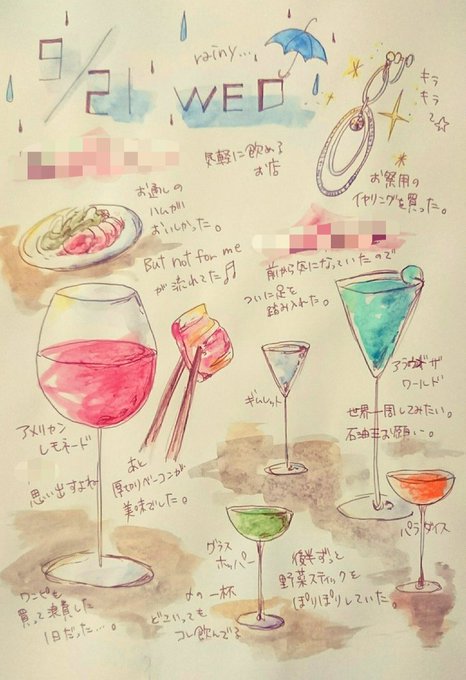 9/21 WED
rainy...
キラ
キラ
で☆
お祭用の
イヤリングを買った。
気軽に飲める
お店
お通しの
ハムが
おいしかった。
But not for me
が流れてた♫
前から気になっていたので
ついに足を
踏み入れた。
アメリカン
レモネード
思い出すよね
あと
厚切りベーコンが
美味でした。
ギムレット
アラウンド・ザ
ワールド
世界一周してみたい。
石油王お願い。
パラダイス
グラス
ホッパー
の一杯
どこいっても
コレ飲んでる
後半ずっと
野菜スティックを
ぽりぽりしていた。
ワンピも
買って
1日だった…。